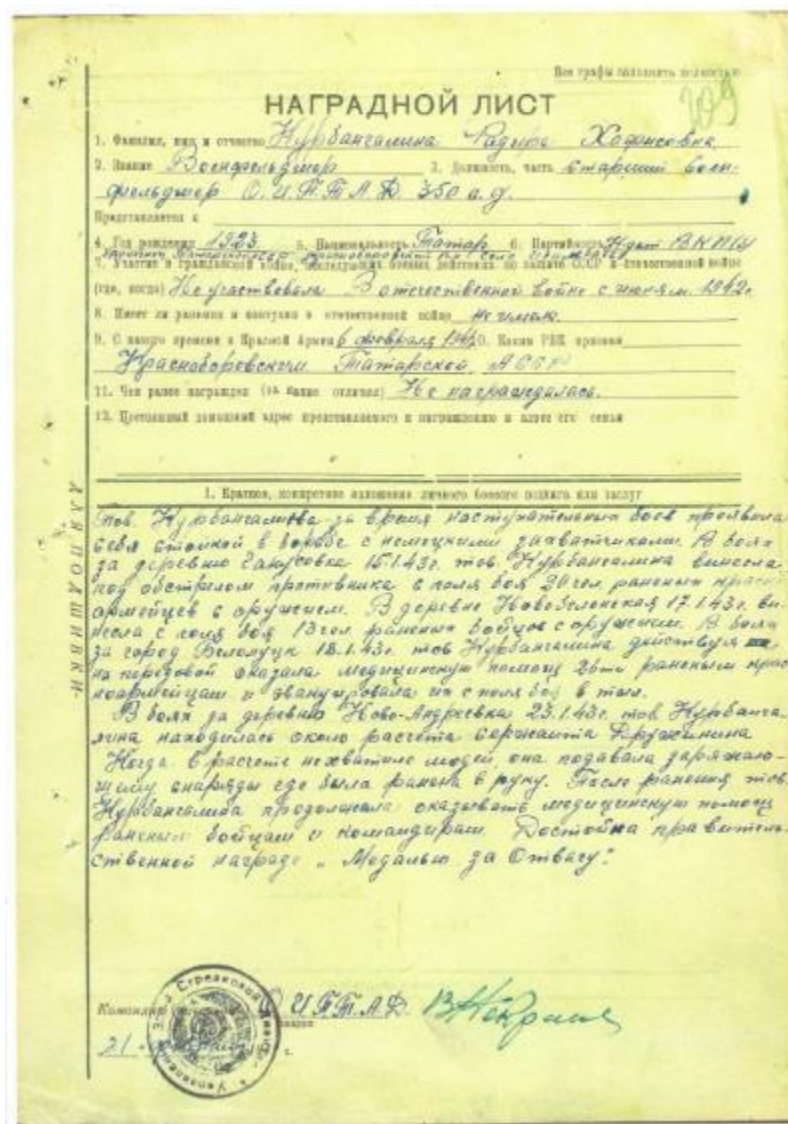 Все графы заполнять полностью
309
НАГРАДНОЙ ЛИСТ
1. Фамилия, имя и отчество Нурбангалина
2. Звание Военфельдшер 3. Должность, часть Старший воен-
фельдшер О.И.П.Т.А.Д. 350 с.д.
Представляется к
4. Год рождения 1923 5. Национальность Татар 6. Партийность Канд ВКП(б)
7. Участие в гражданской войне, последующих боевых действиях по защите СССР и отечественной войне
(где, когда) Не участвовала В отечественной войне с 1942г
8. Имеет ли ранения и контузии в отечественной войне не имела.
9. С какого времени в Красной Армии 6 февраля 10. Каким РВК призван
Красноборовским Татарской АССР
11. Чем ранее награжден (за какие отличия) Не награждалась.
12. Постоянный домашний адрес представляемого к награждению и адрес его семьи
I. Краткое, конкретное изложение личного боевого подвига или заслуг
тов. Нурбангалиева за время наступательных боев проявила
себя стойкой в борьбе с немецкими захватчиками. В боях
за деревню Ганусовка 15.1.43г. тов. Нурбангалина вынесла
под обстрелом противника с поля боя 20 чел раненых красно
армейцев с оружием. В деревне 17.1.43г. вы-
несла с поля боя 13 чел раненых бойцов с оружием. В боях
за город Беловуцк 18.1.43г. тов Нурбангалина действуя
на передовой оказала медицинскую помощ 26ти раненым крас
ноармейцам и эвакуировала их с поля боя в тыл.
В боях за деревню Ново-Андреевка 23.1.43г. тов. Нурбанга-
лина находилась около расчета сержанта Дружинина
Когда в расчете нехватило людей, она подавала заряжаю-
щему снаряды где была ранена в руку. После ранения тов.
Нурбангалина продолжала оказывать медицинскую помощ
раненым бойцам и командирам. Достойна правитель-
ственной награде „Медалью за Отвагу".
ДЛЯ ПОДШИВКИ
Командир О И.П.Т.А.Д.
21